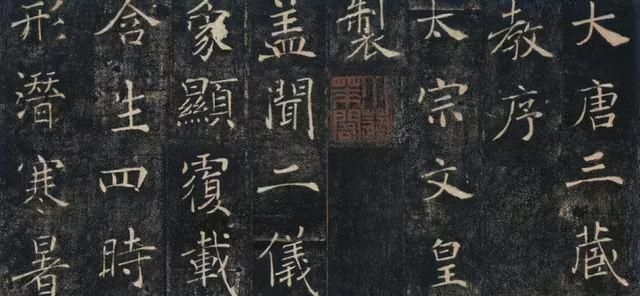 大唐三藏
教序
太宗文皇
製
盖聞二儀
象顯覆載
含生四時
形潛寒暑